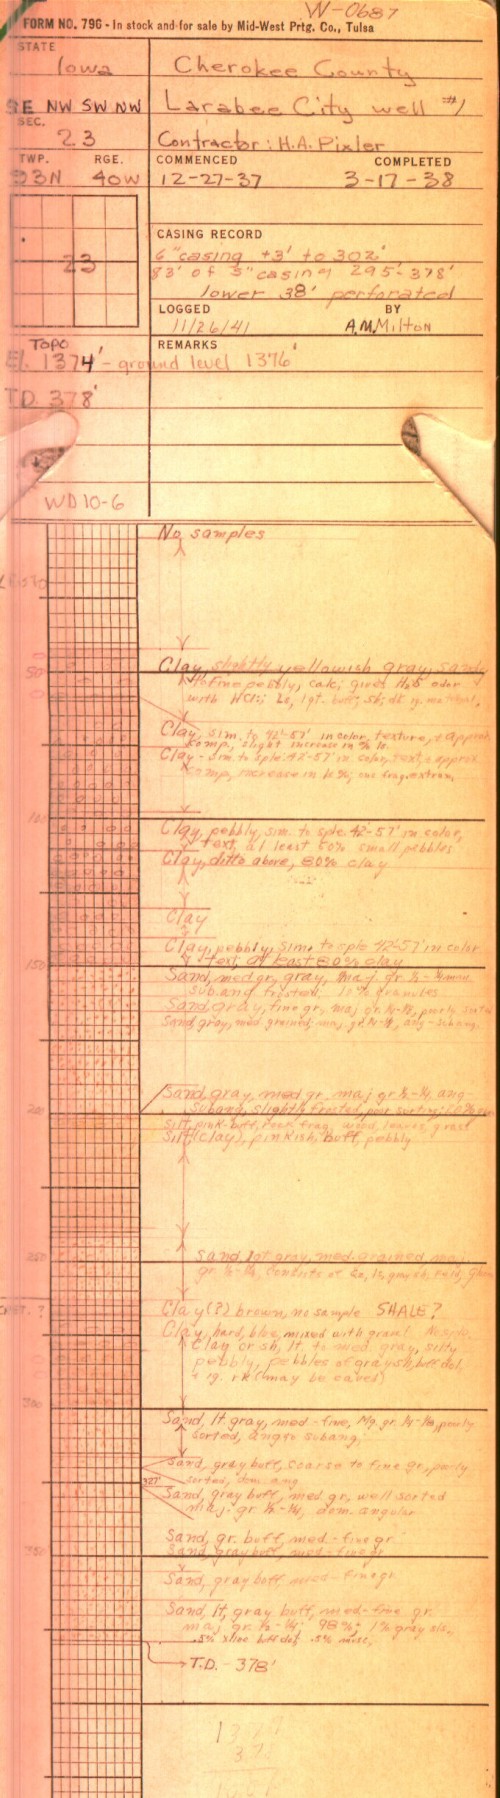 W-0687
FORM NO. 796 - In stock and for sale by Mid-West Prtg. Co., Tulsa
STATE
Iowa
Cherokee County
SE NW SW NW
Larabee City well #1
SEC.
23
Contractor: H.A. Pixler
TWP. RGE.
93N 40W
COMMENCED COMPLETED
12-27-37 3-17-38
23
CASING RECORD
6" casing +3' to 302'
83' of 5" casing 295-378'
lower 38' perforated
LOGGED BY
11/26/41 A.M. Milton
TOPO
REMARKS
El. 1374' - ground level 1376'
T.D. 378'
WD 10-6
No samples
50
Clay, slightly yellowish gray, sandy
to fine pebbly, calc; gives H2S odor
with HCl;
Clay, sim. to 42'-57' in color, texture, & approx
comp, slight increase in % ls.
Clay - sim. to sple. 42'-57' in color, text, & approx
comp, increase in ls %;
100
Clay, pebbly, sim. to sple. 42-57' in color,
text, at least 50% small pebbles
Clay, ditto above, 80% clay
Clay
Clay, pebbly, sim. to sple 42-57' in color
text, at least 80% clay
150
Sand, med gr, gray, maj. gr. ½-¼mm
subang frosted, 10% granules
Sand gray, fine gr, maj gr. ¼-⅛, poorly sorted
Sand, gray, med. grained; maj. gr. ½-¼, ang-subang.
Sand, gray, med gr, maj gr ½-¼, ang-
subang, slightly frosted, poor sorting;
200
Silt, pink-buff, rock frag, wood, leaves, grass
Silt (clay), pinkish, buff, pebbly
250
Sand, lgt gray, med-grained, maj.
gr. ½-¼, consists of
Clay(?) brown, no sample SHALE?
Clay, hard, blue, mixed with gravel No sple.
Clay or sh, lt. to med. gray, silty
pebbly, pebbles of gray sh, buff dol,
+ ig. rk (may be caved)
300
Sand, lt gray, med-fine, Mj. gr. ¼-⅛, poorly
sorted, ang to subang,
Sand, gray buff, coarse to fine gr, porly
sorted, dom. ang
327'
Sand, gray buff, med. gr, well sorted
maj. gr ½-¼, dom. angular
Sand, gr. buff, med-fine gr
350
Sand, gray buff, med-fine gr
Sand, gray buff med-fine gr
Sand, lt, gray buff, med-fine gr.
maj gr ½-¼; 98%; 1% gray sls.,
.5% xline buff dol; .5% misc.
T.D. - 378'